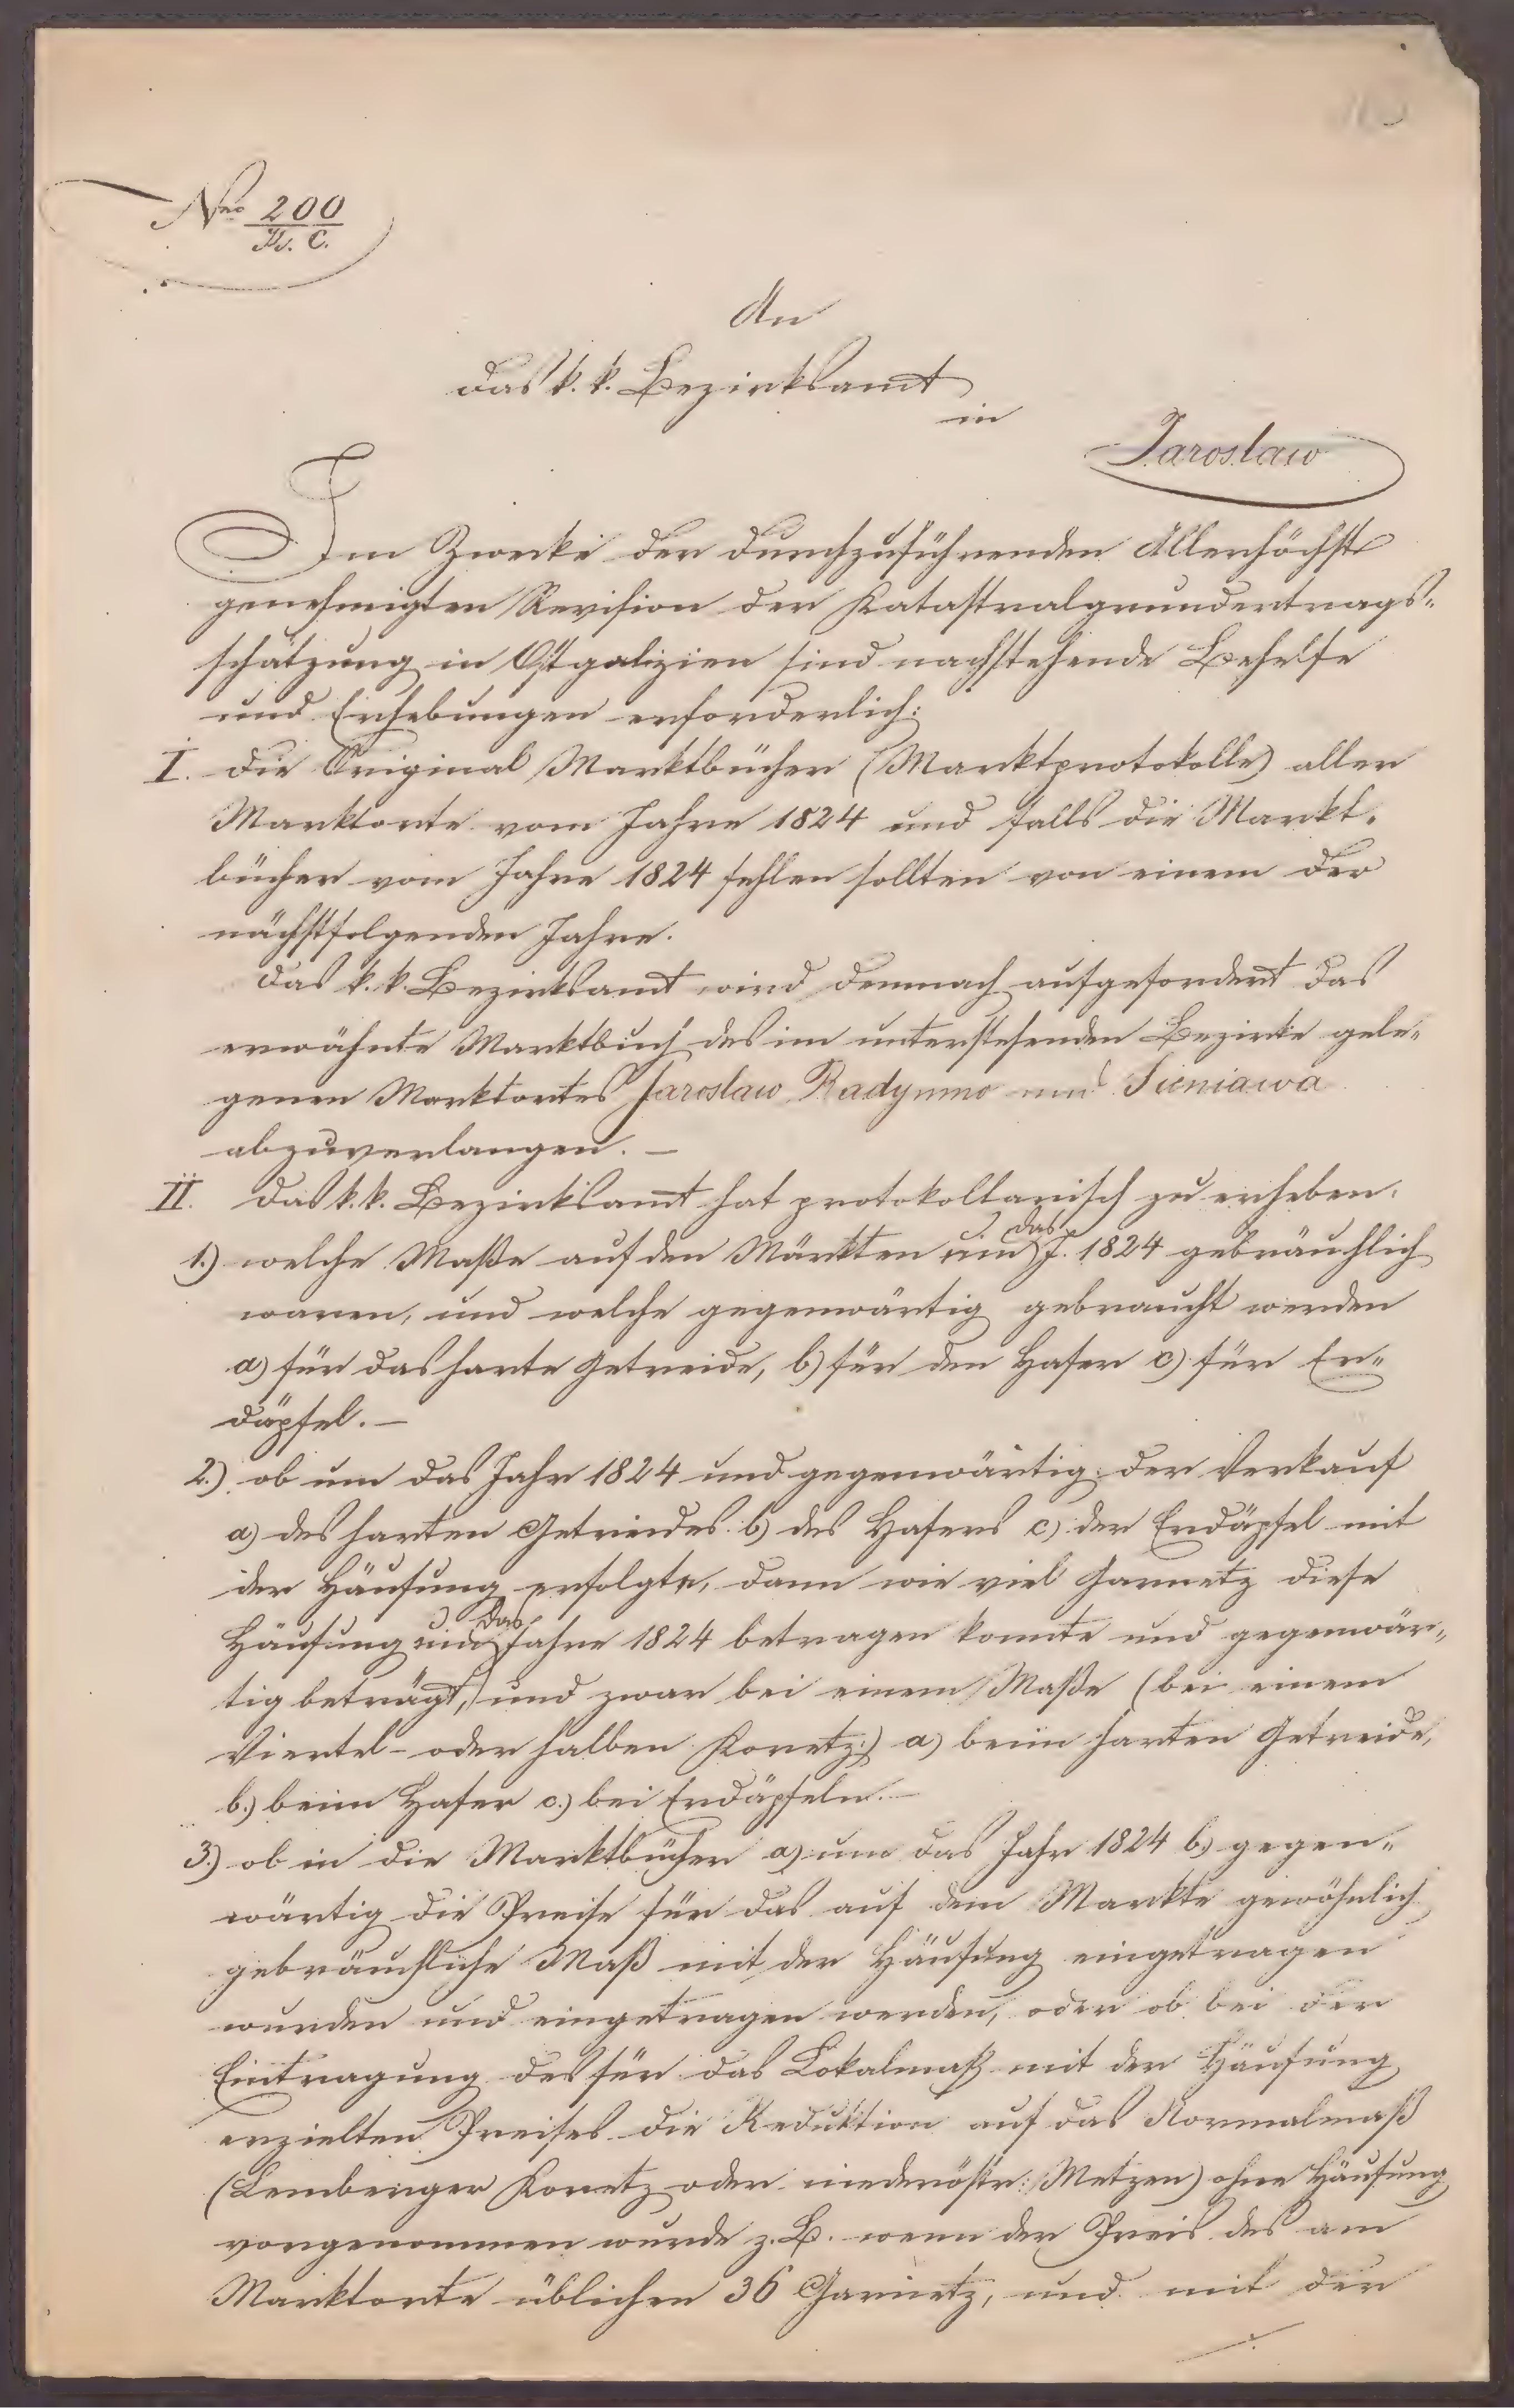 Nro 200
Kr. C.
An
das k. k. Bezirksamt
in
Jaroslaw
Im Zwecke der durchzuführenden Allerhöchst
genehmigten Revision der Katastralgrundertrags-
schätzung in Ostgalizien sind nachstehende Behelfe
und Erhebungen erforderlich:
I. die Original Marktbücher (Marktprotokolle) aller
Marktorte vom Jahre 1824 und falls die Markt-
bücher vom Jahre 1824 fehlen sollten von einem der
nächstfolgenden Jahre.
Das k. k. Bezirksamt wird demnach aufgefordert das
erwähnte Marktbuch des im unterstehenden Bezirke gele-
genen Marktortes Jaroslaw Radymno und Sieniawa
abzuverlangen. –
II. Das k. k. Bezirksamt hat protokollarisch zu erheben.
1.) welche Maße auf den Märkten um das J. 1824 gebräuchlich
waren, und welche gegenwärtig gebraucht werden
a) für das harte Getreide, b) für den Hafer c) für Er-
däpfel. –
2.) ob um das Jahr 1824 und gegenwärtig der Verkauf
a) des harten Getreides b) des Hafers c) der Erdäpfel mit
der Häufung erfolgte, dann wie viel Garnetz diese
Häufung um das Jahre 1824 betragen konnte und gegenwär-
tig beträgt, und zwar bei einem Maße (bei einem
Viertel- oder halben Koretz:) a) beim harten Getreide,
b.) beim Hafer c.) bei Erdäpfeln. –
3.) ob in die Marktbücher a) um das Jahr 1824 b.) gegen-
wärtig die Preise für das auf dem Markte gewöhnlich
gebräuchliche Maß mit der Häufung eingetragen
wurden und eingetragen werden, oder ob bei der
Eintragung des für das Lokalmaß mit der Häufung
erzielten Preises die Reduktion auf das Normalmaß
(Lemberger Koretz oder niederöstr: Metzen) ohne Häufung
vorgenommen wurde z. B. wenn der Preis des am
Marktorte üblichen 36 Garnetz, und mit der